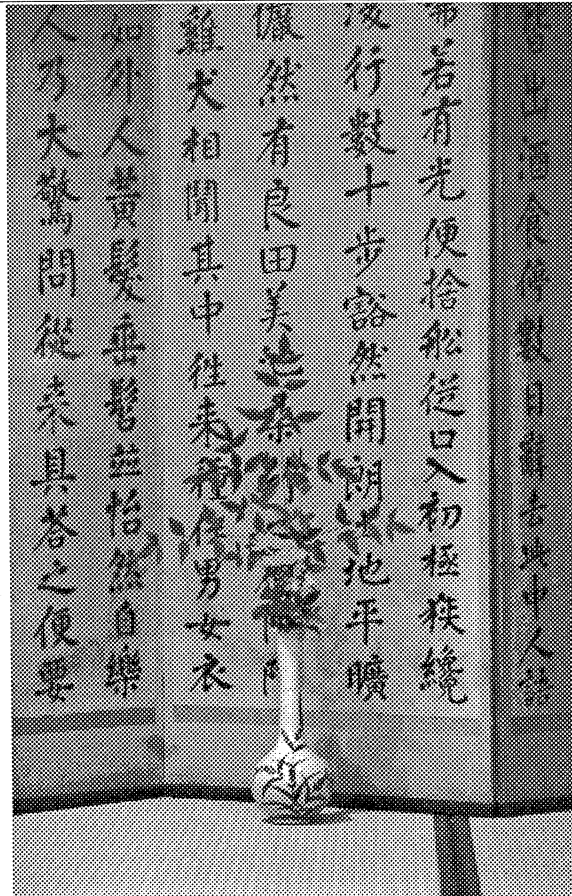 出酒食停數日辭去此中人語
若有光便捨舩從口入初極狹纔
行數十步豁然開朗土地平曠
儼然有良田美池桑竹
雞犬相聞其中往来種作男女衣
如外人黃髮垂髫並怡然自樂
人乃大驚問從来具答之便要